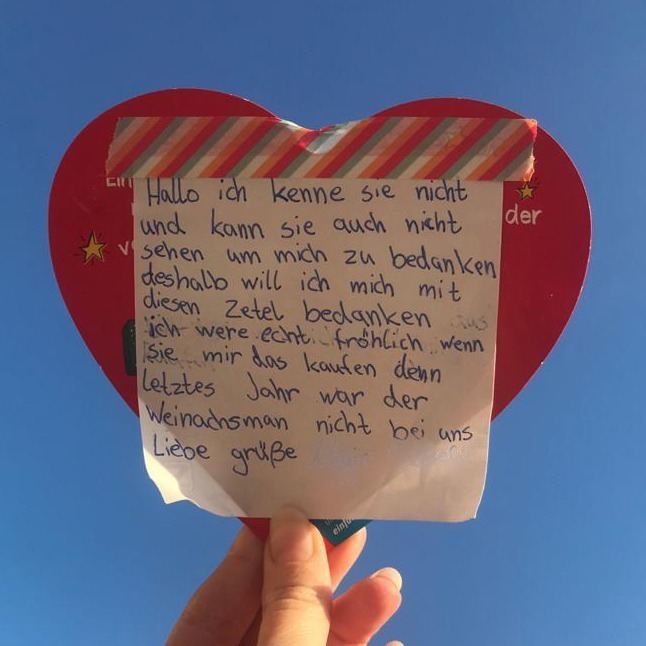 Ein
der
Hallo ich kenne sie nicht
und kann sie auch nicht
sehen um mich zu bedanken
deshalb will ich mich mit
diesen Zetel bedanken
ich were echt fröhlich wenn
sie mir das kaufen denn
letztes Jahr war der
Weinachsman nicht bei uns
Liebe grüße